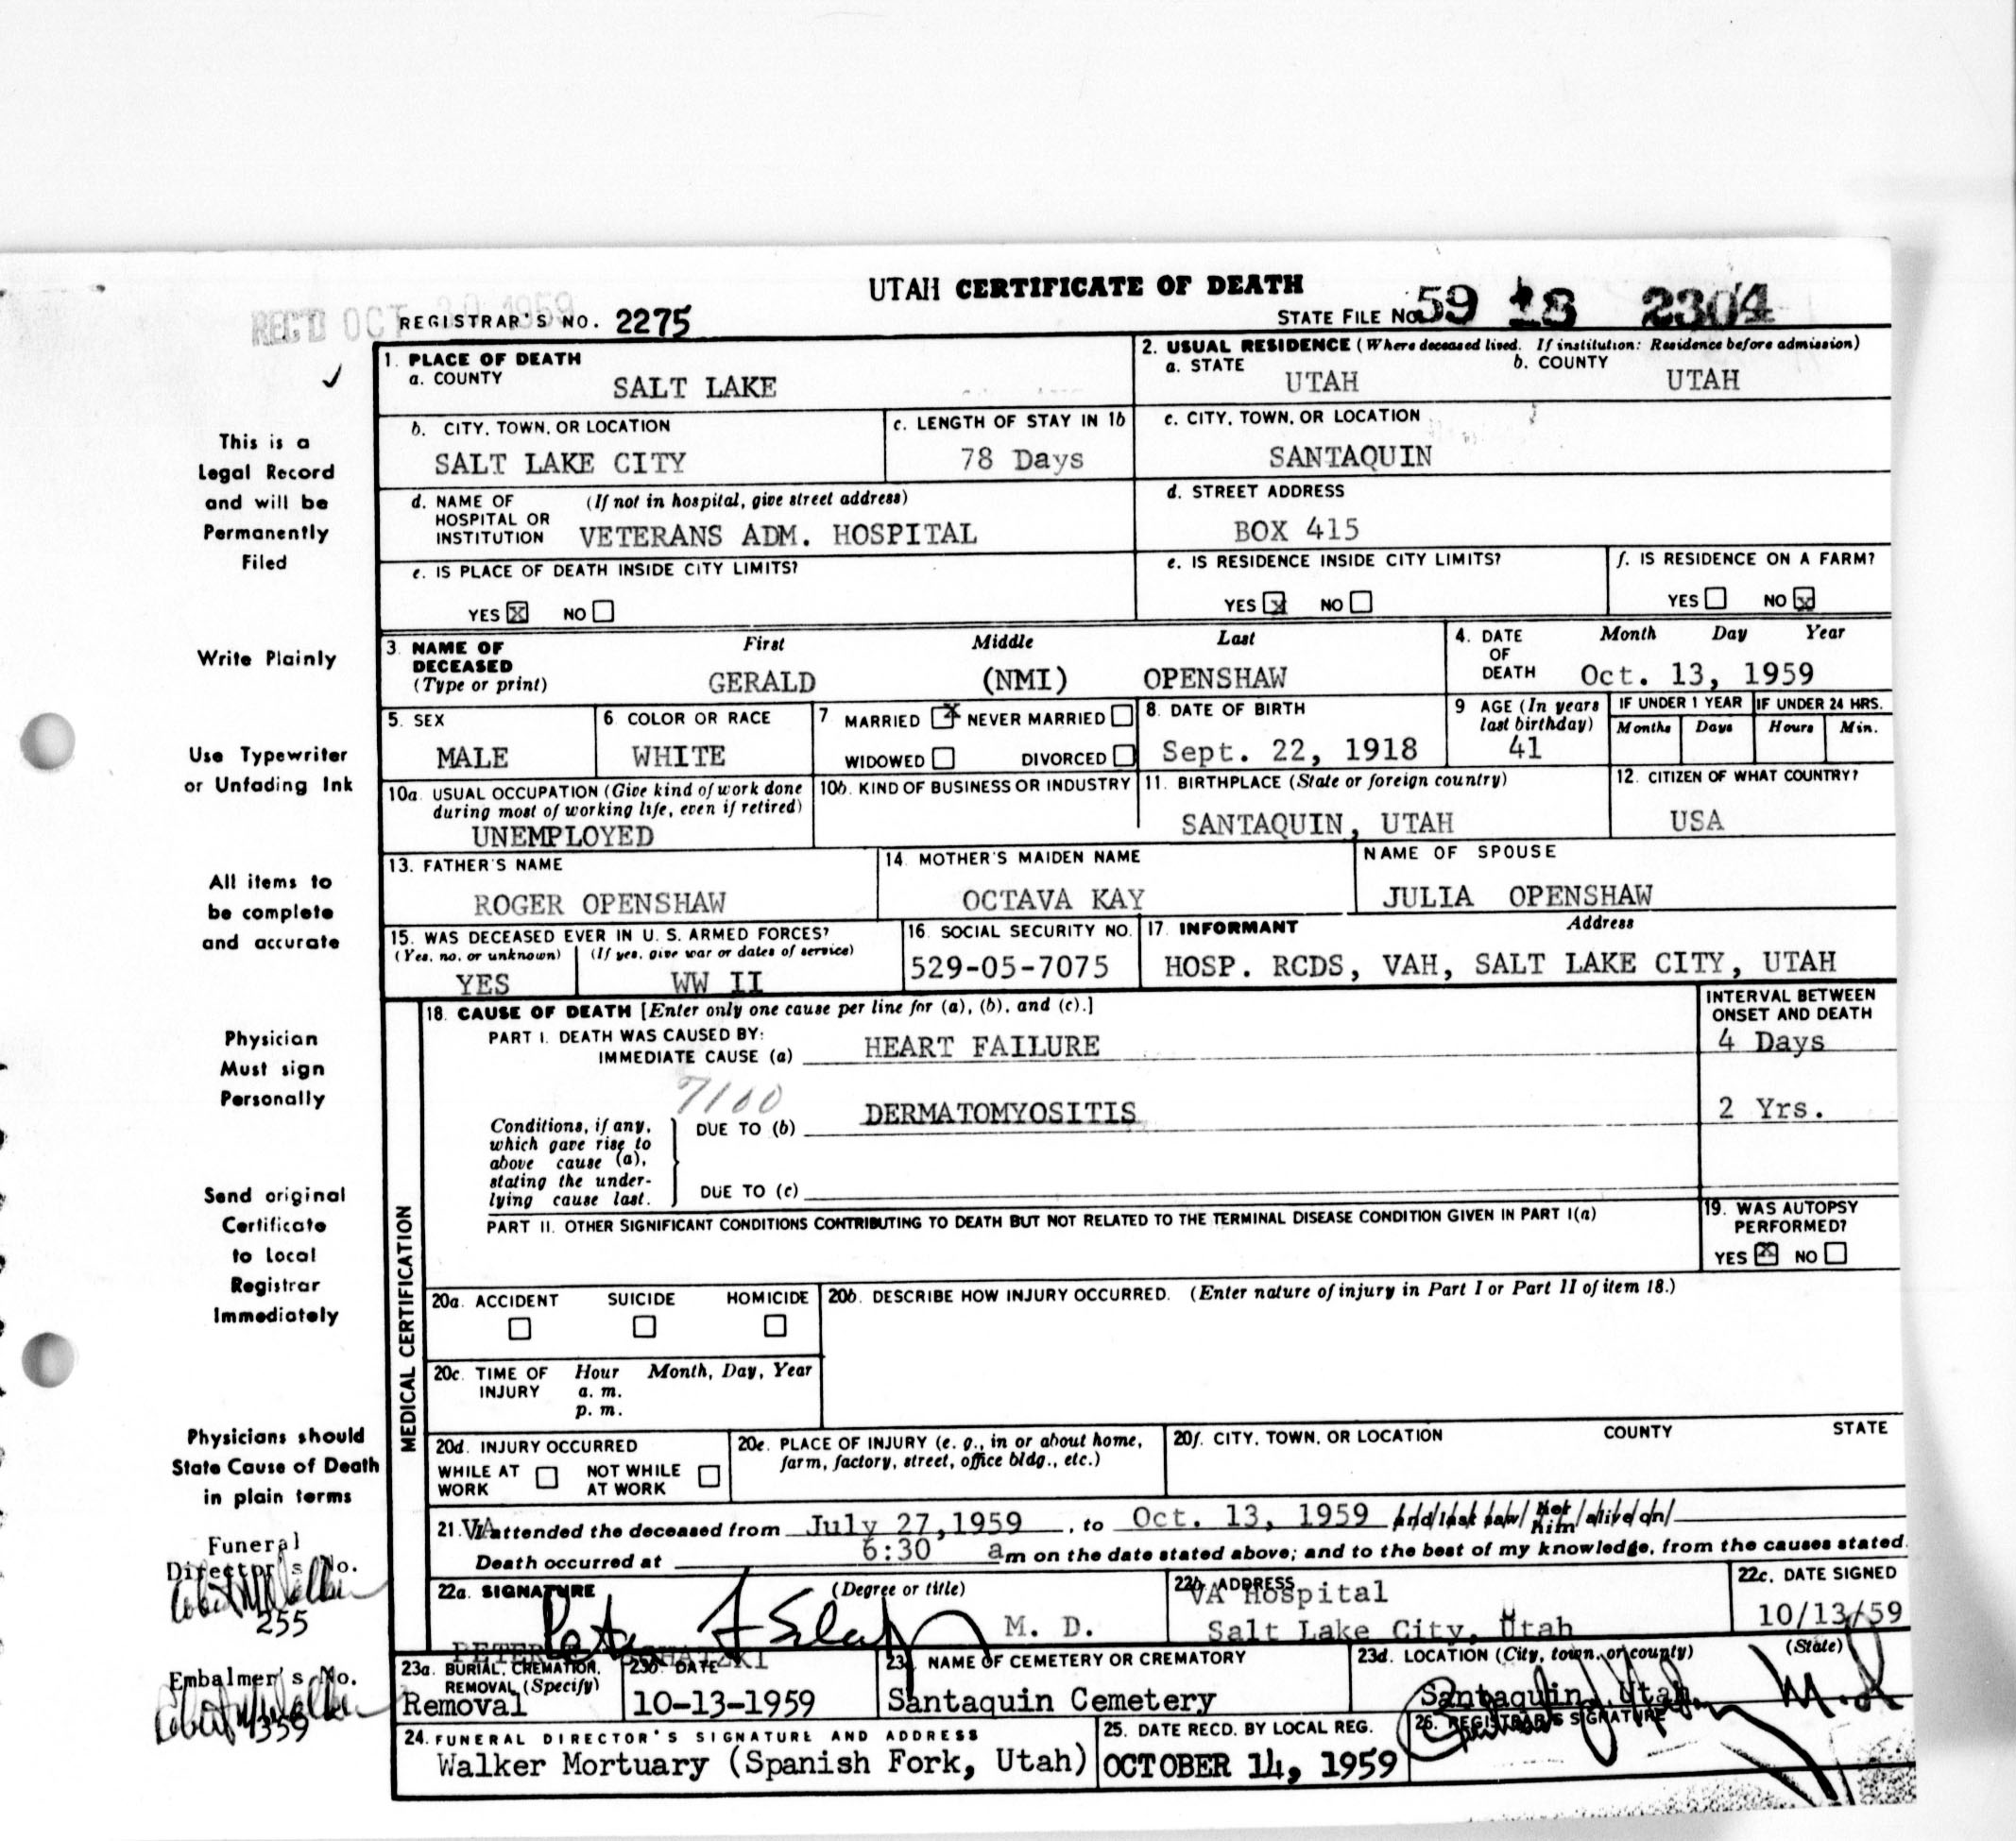 UTAH CERTIFICATE OF DEATH
REC'D OCT 30 1959
REGISTRAR'S NO. 2275
STATE FILE No. 59 18 2304
This is a
Legal Record
and will be
Permanently
Filed
Write Plainly
Use Typewriter
or Unfading Ink
All items to
be complete
and accurate
Physician
Must sign
Personally
Send original
Certificate
to Local
Registrar
Immediately
Physicians should
State Cause of Death
in plain terms
Funeral
Director's No.
255
Embalmer's No.
359
1. PLACE OF DEATH
a. COUNTY
SALT LAKE
2. USUAL RESIDENCE (Where deceased lived. If institution: Residence before admission)
a. STATE
UTAH
b. COUNTY
UTAH
b. CITY, TOWN, OR LOCATION
SALT LAKE CITY
c. LENGTH OF STAY IN 1b
78 Days
c. CITY, TOWN, OR LOCATION
SANTAQUIN
d. NAME OF HOSPITAL OR INSTITUTION
(If not in hospital, give street address)
VETERANS ADM. HOSPITAL
d. STREET ADDRESS
BOX 415
e. IS PLACE OF DEATH INSIDE CITY LIMITS?
YES X NO
e. IS RESIDENCE INSIDE CITY LIMITS?
YES X NO
f. IS RESIDENCE ON A FARM?
YES NO X
3. NAME OF DECEASED
(Type or print)
First Middle Last
GERALD (NMI) OPENSHAW
4. DATE OF DEATH
Month Day Year
Oct. 13, 1959
5. SEX
MALE
6. COLOR OR RACE
WHITE
7 MARRIED X NEVER MARRIED
WIDOWED DIVORCED
8. DATE OF BIRTH
Sept. 22, 1918
9 AGE (In years last birthday)
41
IF UNDER 1 YEAR
Months Days
IF UNDER 24 HRS.
Hours Min.
10a. USUAL OCCUPATION (Give kind of work done
during most of working life, even if retired)
UNEMPLOYED
10b. KIND OF BUSINESS OR INDUSTRY
11. BIRTHPLACE (State or foreign country)
SANTAQUIN, UTAH
12. CITIZEN OF WHAT COUNTRY?
USA
13. FATHER'S NAME
ROGER OPENSHAW
14. MOTHER'S MAIDEN NAME
OCTAVA KAY
NAME OF SPOUSE
JULIA OPENSHAW
15. WAS DECEASED EVER IN U. S. ARMED FORCES?
(Yes, no, or unknown) (If yes, give war or dates of service)
YES WW II
16. SOCIAL SECURITY NO.
529-05-7075
17. INFORMANT Address
HOSP. RCDS, VAH, SALT LAKE CITY, UTAH
MEDICAL CERTIFICATION
18. CAUSE OF DEATH [Enter only one cause per line for (a), (b), and (c).]
INTERVAL BETWEEN
ONSET AND DEATH
PART I. DEATH WAS CAUSED BY:
IMMEDIATE CAUSE (a) HEART FAILURE
4 Days
7100
Conditions, if any,
which gave rise to
above cause (a),
stating the under-
lying cause last.
DUE TO (b) DERMATOMYOSITIS
2 Yrs.
DUE TO (c)
PART II. OTHER SIGNIFICANT CONDITIONS CONTRIBUTING TO DEATH BUT NOT RELATED TO THE TERMINAL DISEASE CONDITION GIVEN IN PART I(a)
19. WAS AUTOPSY
PERFORMED?
YES X NO
20a. ACCIDENT SUICIDE HOMICIDE
20b. DESCRIBE HOW INJURY OCCURRED. (Enter nature of injury in Part I or Part II of item 18.)
20c. TIME OF INJURY
Hour Month, Day, Year
a. m.
p. m.
20d. INJURY OCCURRED
WHILE AT WORK NOT WHILE AT WORK
20e. PLACE OF INJURY (e. g., in or about home,
farm, factory, street, office bldg., etc.)
20f. CITY, TOWN, OR LOCATION COUNTY STATE
21. VA attended the deceased from July 27, 1959, to Oct. 13, 1959 and last saw her him alive on
Death occurred at 6:30 am on the date stated above; and to the best of my knowledge, from the causes stated.
22a. SIGNATURE (Degree or title)
M. D.
PETER
22b. ADDRESS
VA Hospital
Salt Lake City, Utah
22c. DATE SIGNED
10/13/59
23a. BURIAL, CREMATION,
REMOVAL (Specify)
Removal
23b. DATE
10-13-1959
23c NAME OF CEMETERY OR CREMATORY
Santaquin Cemetery
23d. LOCATION (City, town, or county) (State)
Santaquin, Utah
24. FUNERAL DIRECTOR'S SIGNATURE AND ADDRESS
Walker Mortuary (Spanish Fork, Utah)
25. DATE RECD. BY LOCAL REG.
OCTOBER 14, 1959
26. REGISTRAR'S SIGNATURE
M.D